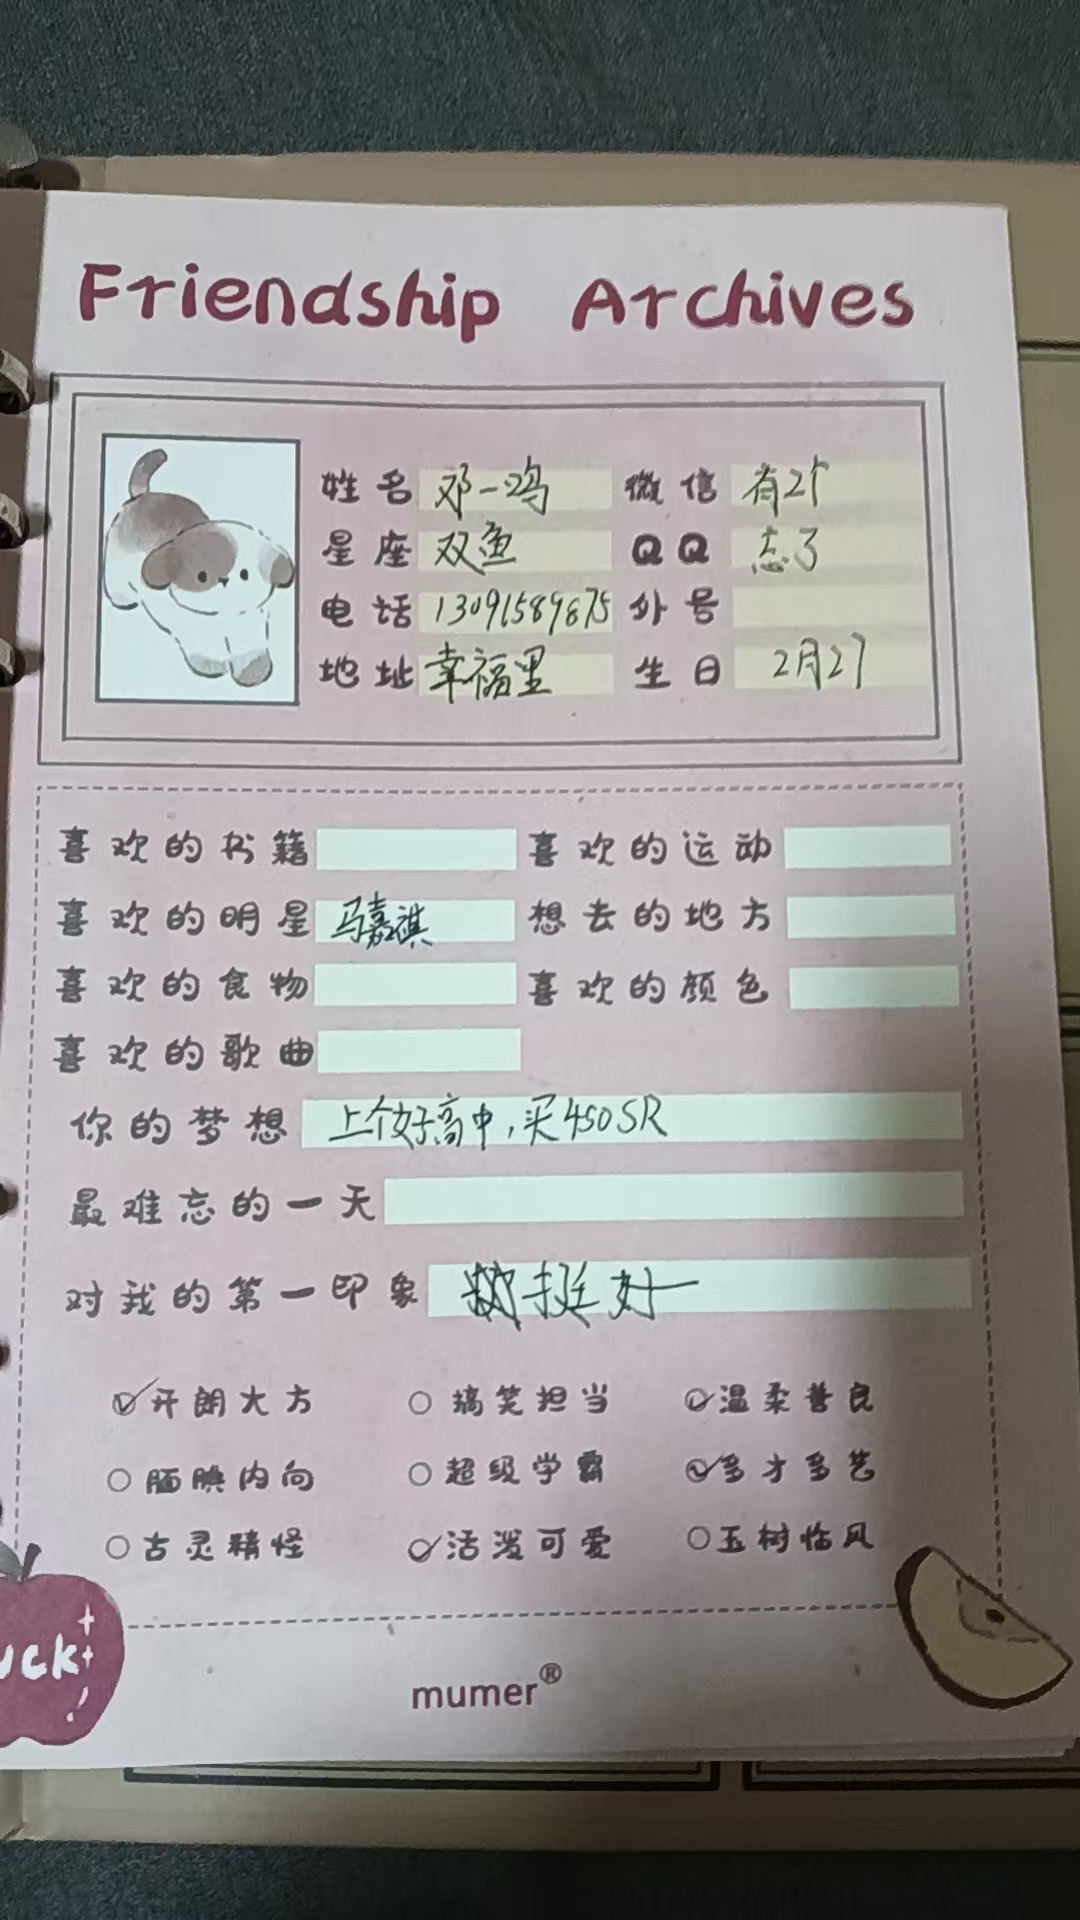 Friendship Archives
姓名 邓一鸣 微信 有2个
星座 双鱼 QQ 忘了
电话 13091589875 外号
地址 幸福里 生日 2月27
喜欢的书籍 喜欢的运动
喜欢的明星 马嘉祺 想去的地方
喜欢的食物 喜欢的颜色
喜欢的歌曲
你的梦想 上个好高中,买450SR
最难忘的一天
对我的第一印象 挺好
开朗大方 搞笑担当 温柔善良
腼腆内向 超级学霸 多才多艺
古灵精怪 活泼可爱 玉树临风
uck!
mumer®